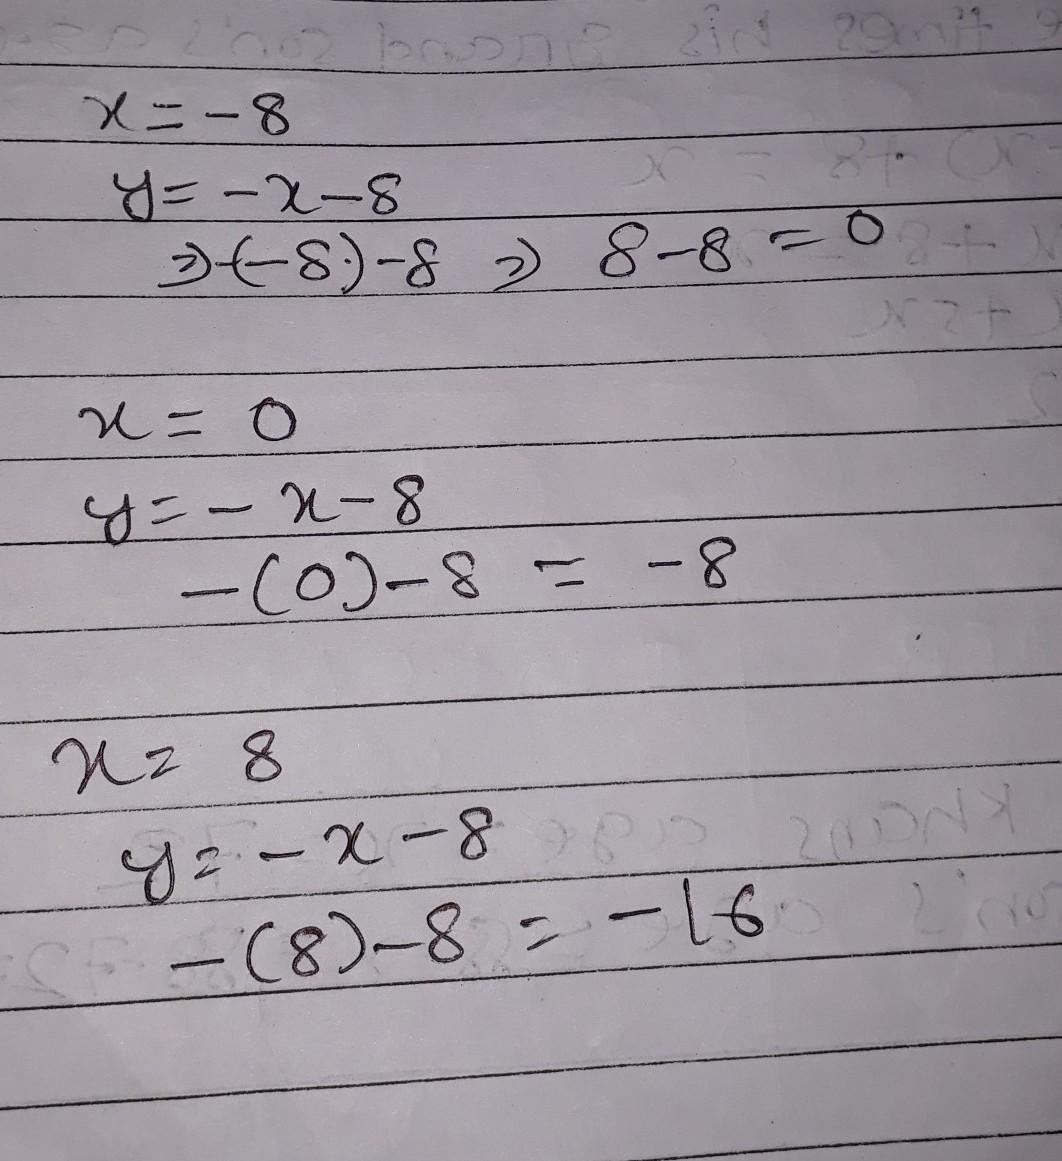 x = -8
y = -x-8
⇒ -(-8)-8 ⇒ 8-8 = 0
x = 0
y = -x-8
-(0)-8 = -8
x = 8
y = -x-8
-(8)-8 = -16